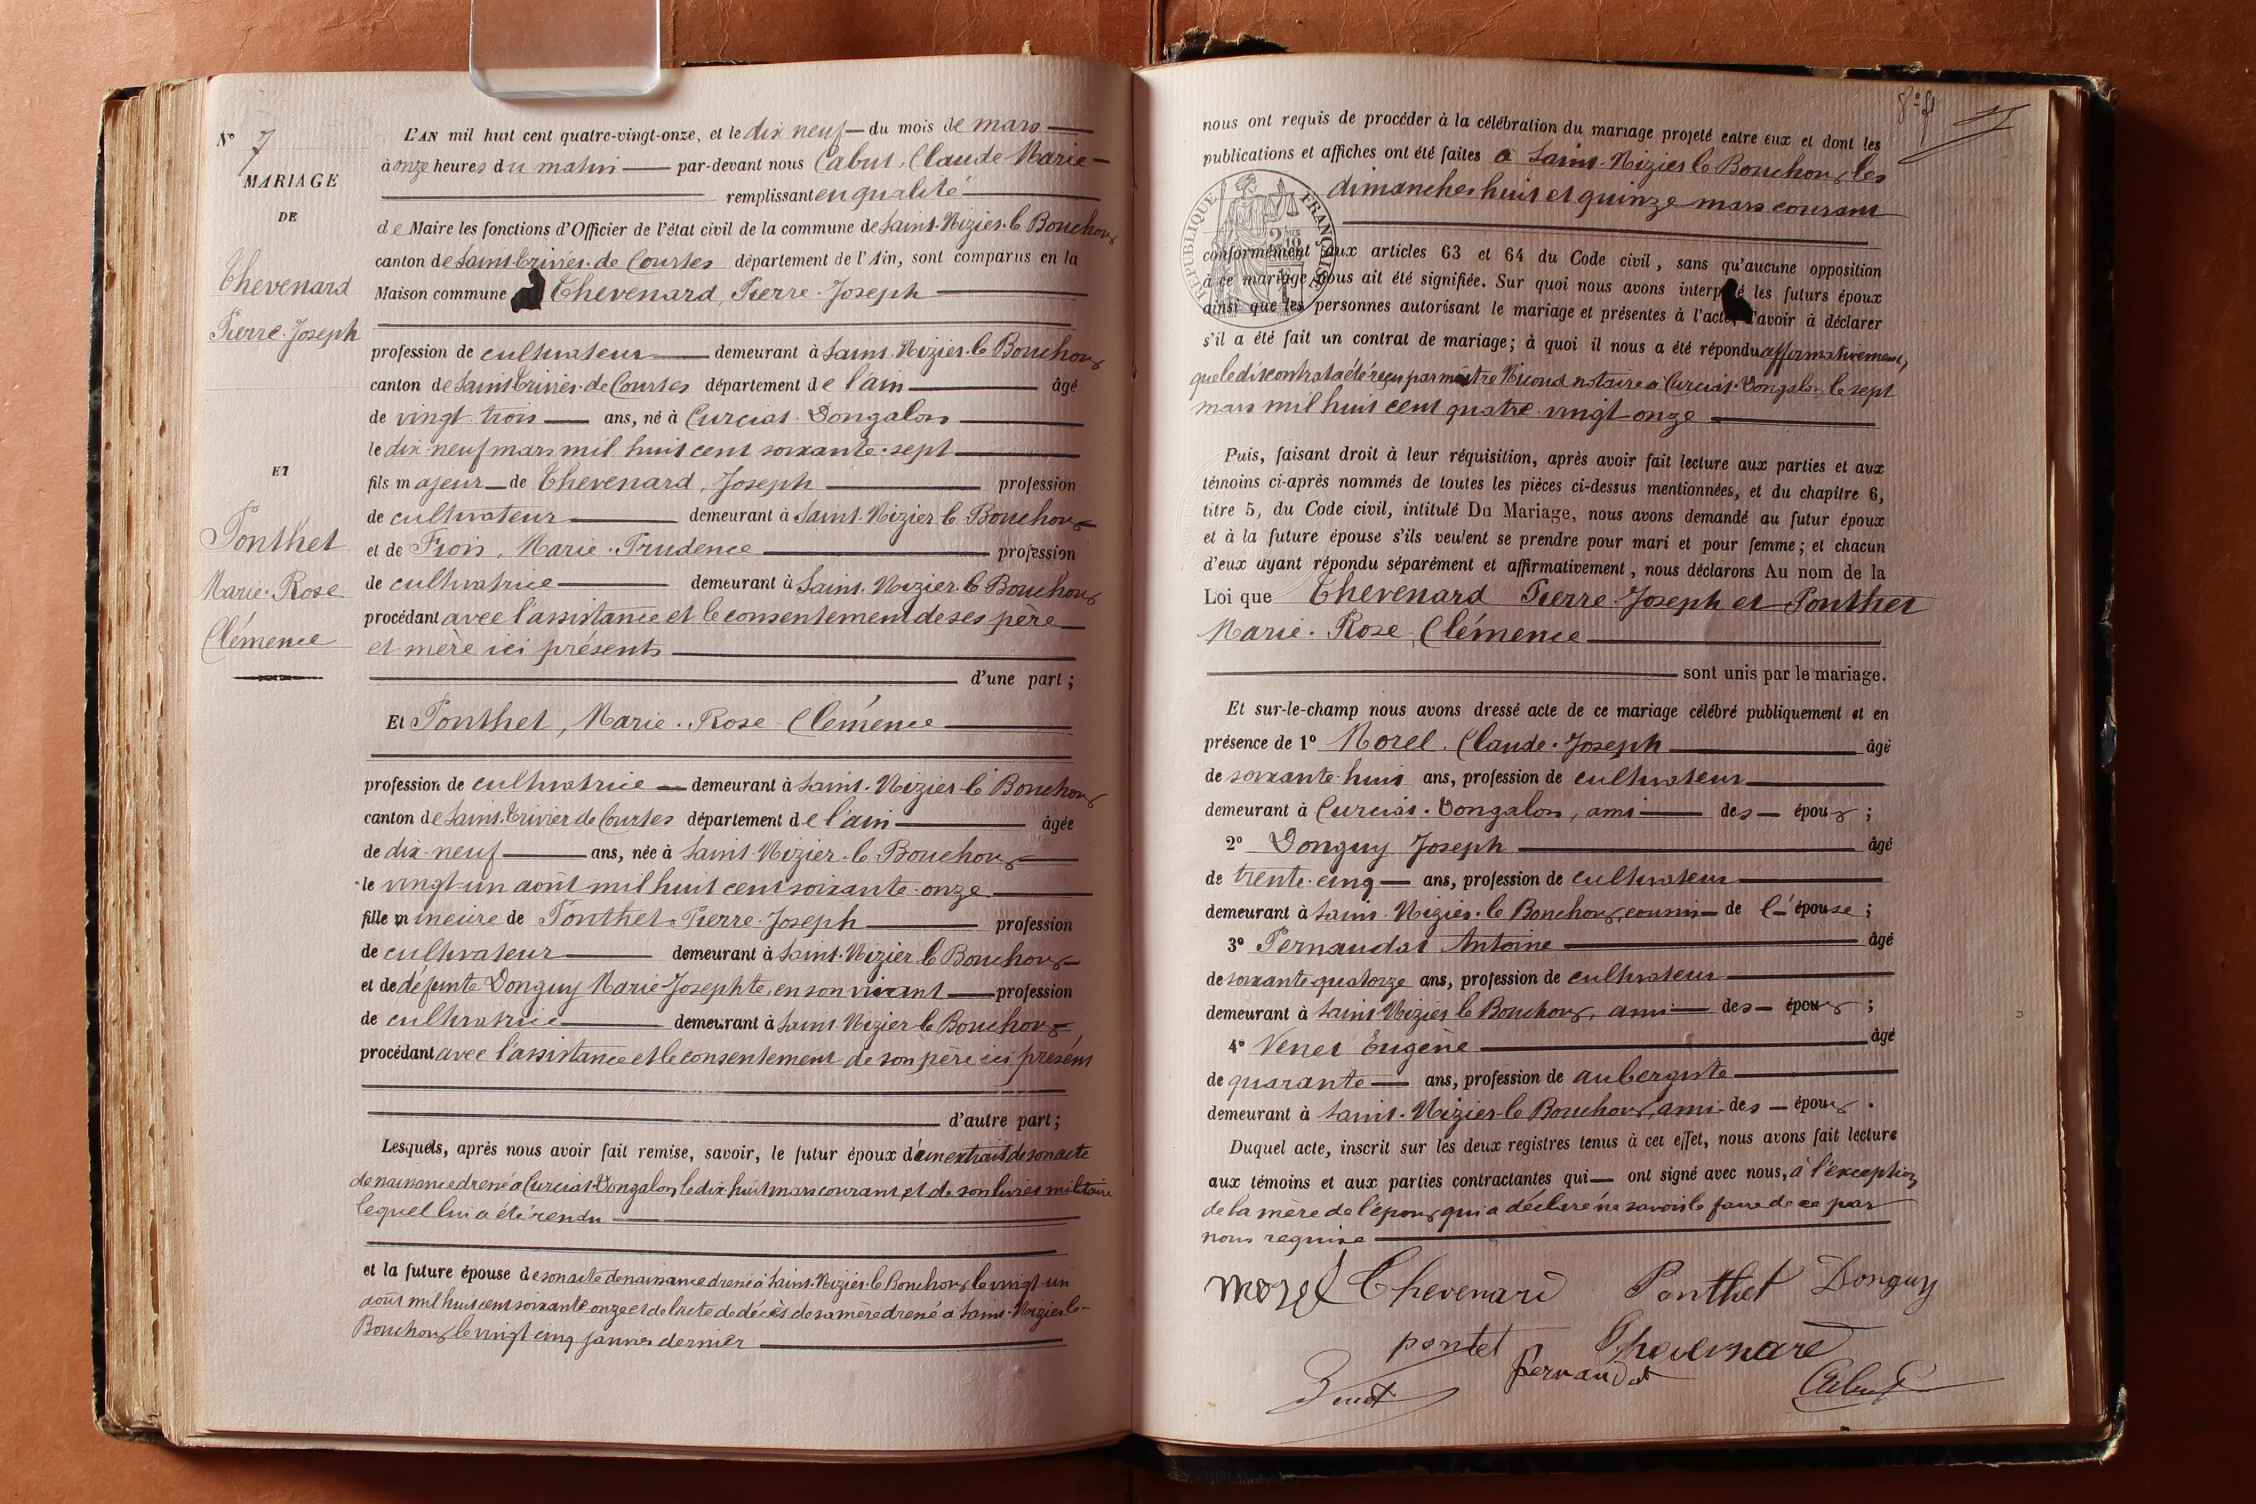 N° 7
MARIAGE
DE
Thevenard
Pierre-Joseph
ET
Ponthet
Marie-Rose
Clémence
L'AN mil huit cent quatre-vingt-onze, et le dix neuf du mois de mars
à onze heures du matin par-devant nous Cabut, Claude Marie
remplissant en qualité
de Maire les fonctions d'Officier de l'état civil de la commune de Saint-Nizier-le Bouchoux
canton de Saint-Trivier-de Courtes département de l'Ain, sont comparus en la
Maison commune Thevenard, Pierre-Joseph
profession de cultivateur demeurant à Saint-Nizier-le Bouchoux
canton de Saint Trivier-de Courtes département de l'ain âgé
de vingt-trois ans, né à Curciat-Dongalon
le dix-neuf mars mil huit cent soixante-sept
fils majeur de Thevenard, Joseph profession
de cultivateur demeurant à Saint-Nizier le Bouchoux
et de Frois, Marie-Prudence profession
de cultivatrice demeurant à Saint-Nizier-le Bouchoux
procédant avec l'assistance et le consentement de ses père
et mère ici présents
d'une part ;
Et Ponthet, Marie-Rose Clémence
profession de cultivatrice demeurant à Saint-Nizier-le Bouchoux
canton de Saint-Trivier de Courtes département de l'ain âgée
de dix-neuf ans, née à Saint-Nizier-le Bouchoux
le vingt-un août mil huit cent soixante-onze
fille mineure de Ponthet Pierre-Joseph profession
de cultivateur demeurant à Saint-Nizier le Bouchoux
et de défunte Donguy Marie-Josephte, en son vivant profession
de cultivatrice demeurant à Saint Nizier le Bouchoux
procédant avec l'assistance et le consentement de son père ici présent
d'autre part ;
Lesquels, après nous avoir fait remise, savoir, le futur époux d'un extrait de son acte
de naissance dressé à Curciat-Dongalon le dix-huit mars courant et de son livret militaire
lequel lui a été rendu
et la future épouse de son acte de naissance dressé à Saint-Nizier-le Bouchoux le vingt-un
août mil huit cent soixante onze et de l'acte de décès de sa mère dressé à Saint-Nizier le-
Bouchoux le vingt cinq janvier dernier
nous ont requis de procéder à la célébration du mariage projeté entre eux et dont les
publications et affiches ont été faites à Saint-Nizier le Bouchoux les
dimanches huit et quinze mars courant
RÉPUBLIQUE FRANÇAISE
conformément aux articles 63 et 64 du Code civil, sans qu'aucune opposition
à ce mariage nous ait été signifiée. Sur quoi nous avons interpellé les futurs époux
ainsi que les personnes autorisant le mariage et présentes à l'acte, d'avoir à déclarer
s'il a été fait un contrat de mariage ; à quoi il nous a été répondu affirmativement,
que le dit contrat a été reçu par maître Nicoud notaire à Curciat-Dongalon, le sept
mars mil huit cent quatre-vingt onze
Puis, faisant droit à leur réquisition, après avoir fait lecture aux parties et aux
témoins ci-après nommés de toutes les pièces ci-dessus mentionnées, et du chapitre 6,
titre 5, du Code civil, intitulé Du Mariage, nous avons demandé au futur époux
et à la future épouse s'ils veulent se prendre pour mari et pour femme ; et chacun
d'eux ayant répondu séparément et affirmativement, nous déclarons Au nom de la
Loi que Thevenard Pierre-Joseph et Ponthet
Marie-Rose Clémence
sont unis par le mariage.
Et sur-le-champ nous avons dressé acte de ce mariage célébré publiquement et en
présence de 1° Morel, Claude-Joseph âgé
de soixante-huit ans, profession de cultivateur
demeurant à Curciat-Dongalon, ami des époux ;
2° Donguy Joseph âgé
de trente-cinq ans, profession de cultivateur
demeurant à Saint-Nizier-le Bouchoux, cousin de l'épouse ;
3° Pernaudat Antoine âgé
de soixante-quatorze ans, profession de cultivateur
demeurant à Saint-Nizier le Bouchoux, ami des époux ;
4° Venet Eugène âgé
de quarante ans, profession de aubergiste
demeurant à Saint-Nizier-le Bouchoux, ami des époux.
Duquel acte, inscrit sur les deux registres tenus à cet effet, nous avons fait lecture
aux témoins et aux parties contractantes qui ont signé avec nous, à l'exception
de la mère de l'époux qui a déclaré ne savoir le faire de ce par
nous requise
morel Thevenard Ponthet Donguy
pontet Thevenard
Pernaudat
Venet Cabut